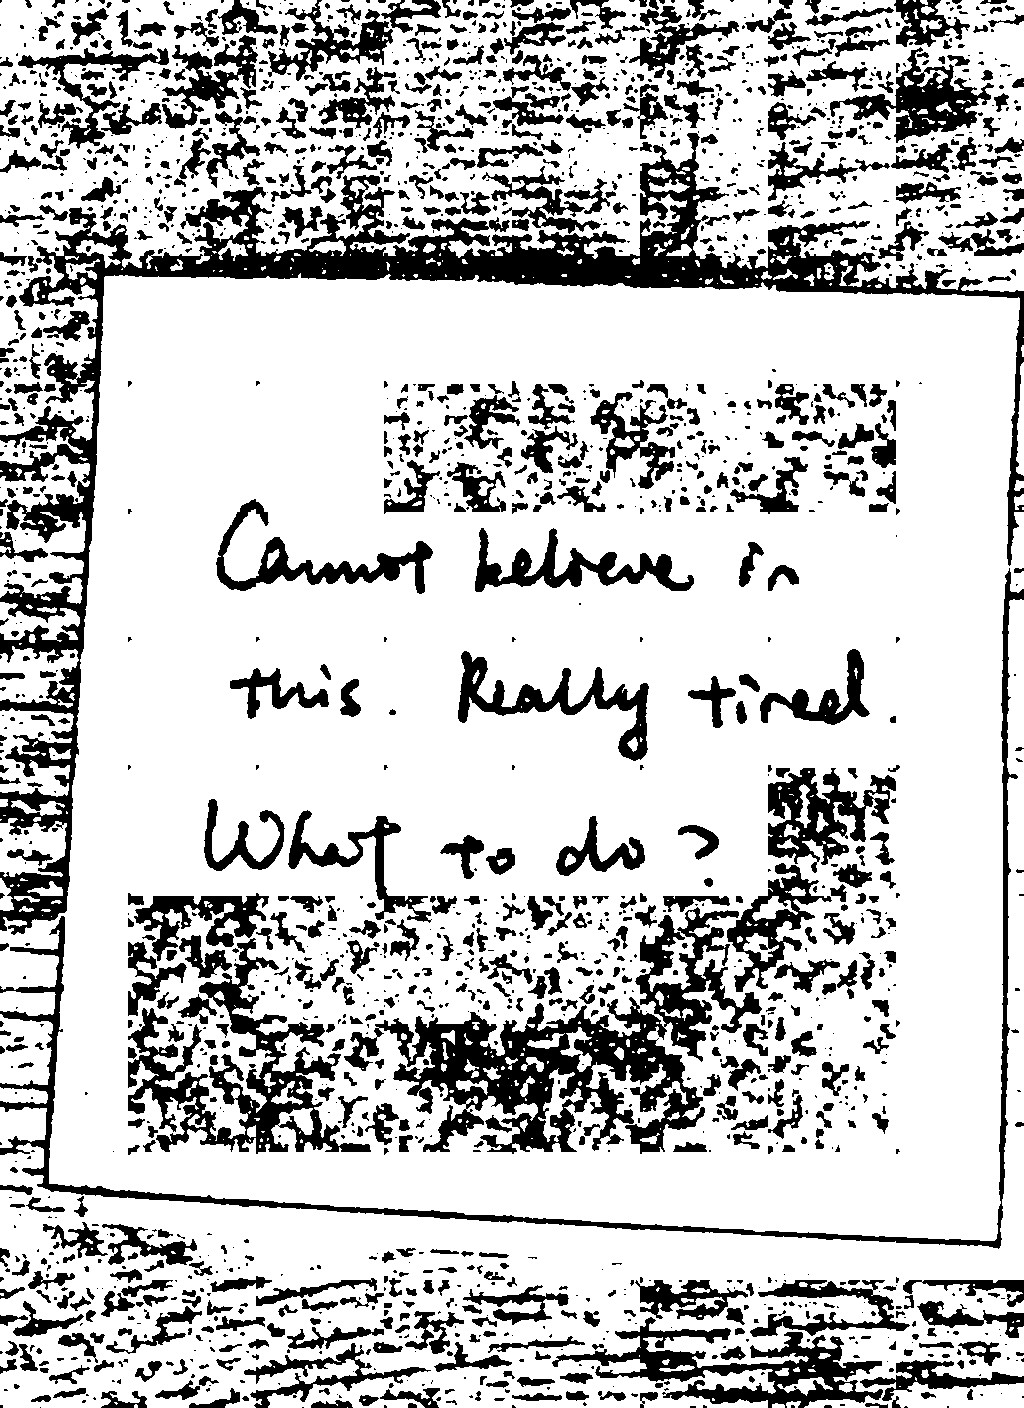 Cannot believe in
this. Really tired.
What to do?